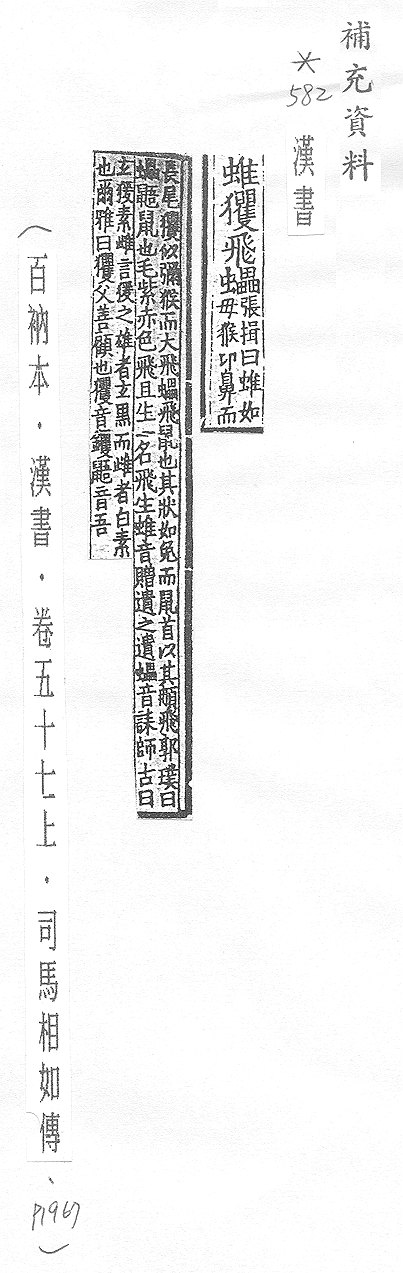 補充資料
*582 漢書
蜼玃飛蠝張揖曰蜼如
毋猴卬鼻而
長尾玃似獼猴而大飛蠝飛鼠也其狀如兔而鼠首以其𩑺飛郭璞曰
蠝鼯鼠也毛紫赤色飛且生一名飛生蜼音贈遺之遺蠝音誄師古曰
玄猨素雌言猨之雄者玄黑而雌者白素
也爾雅曰玃父善顧也玃音钁鼯音吾
(百衲本.漢書.卷五十七上.司馬相如傳、P1967)